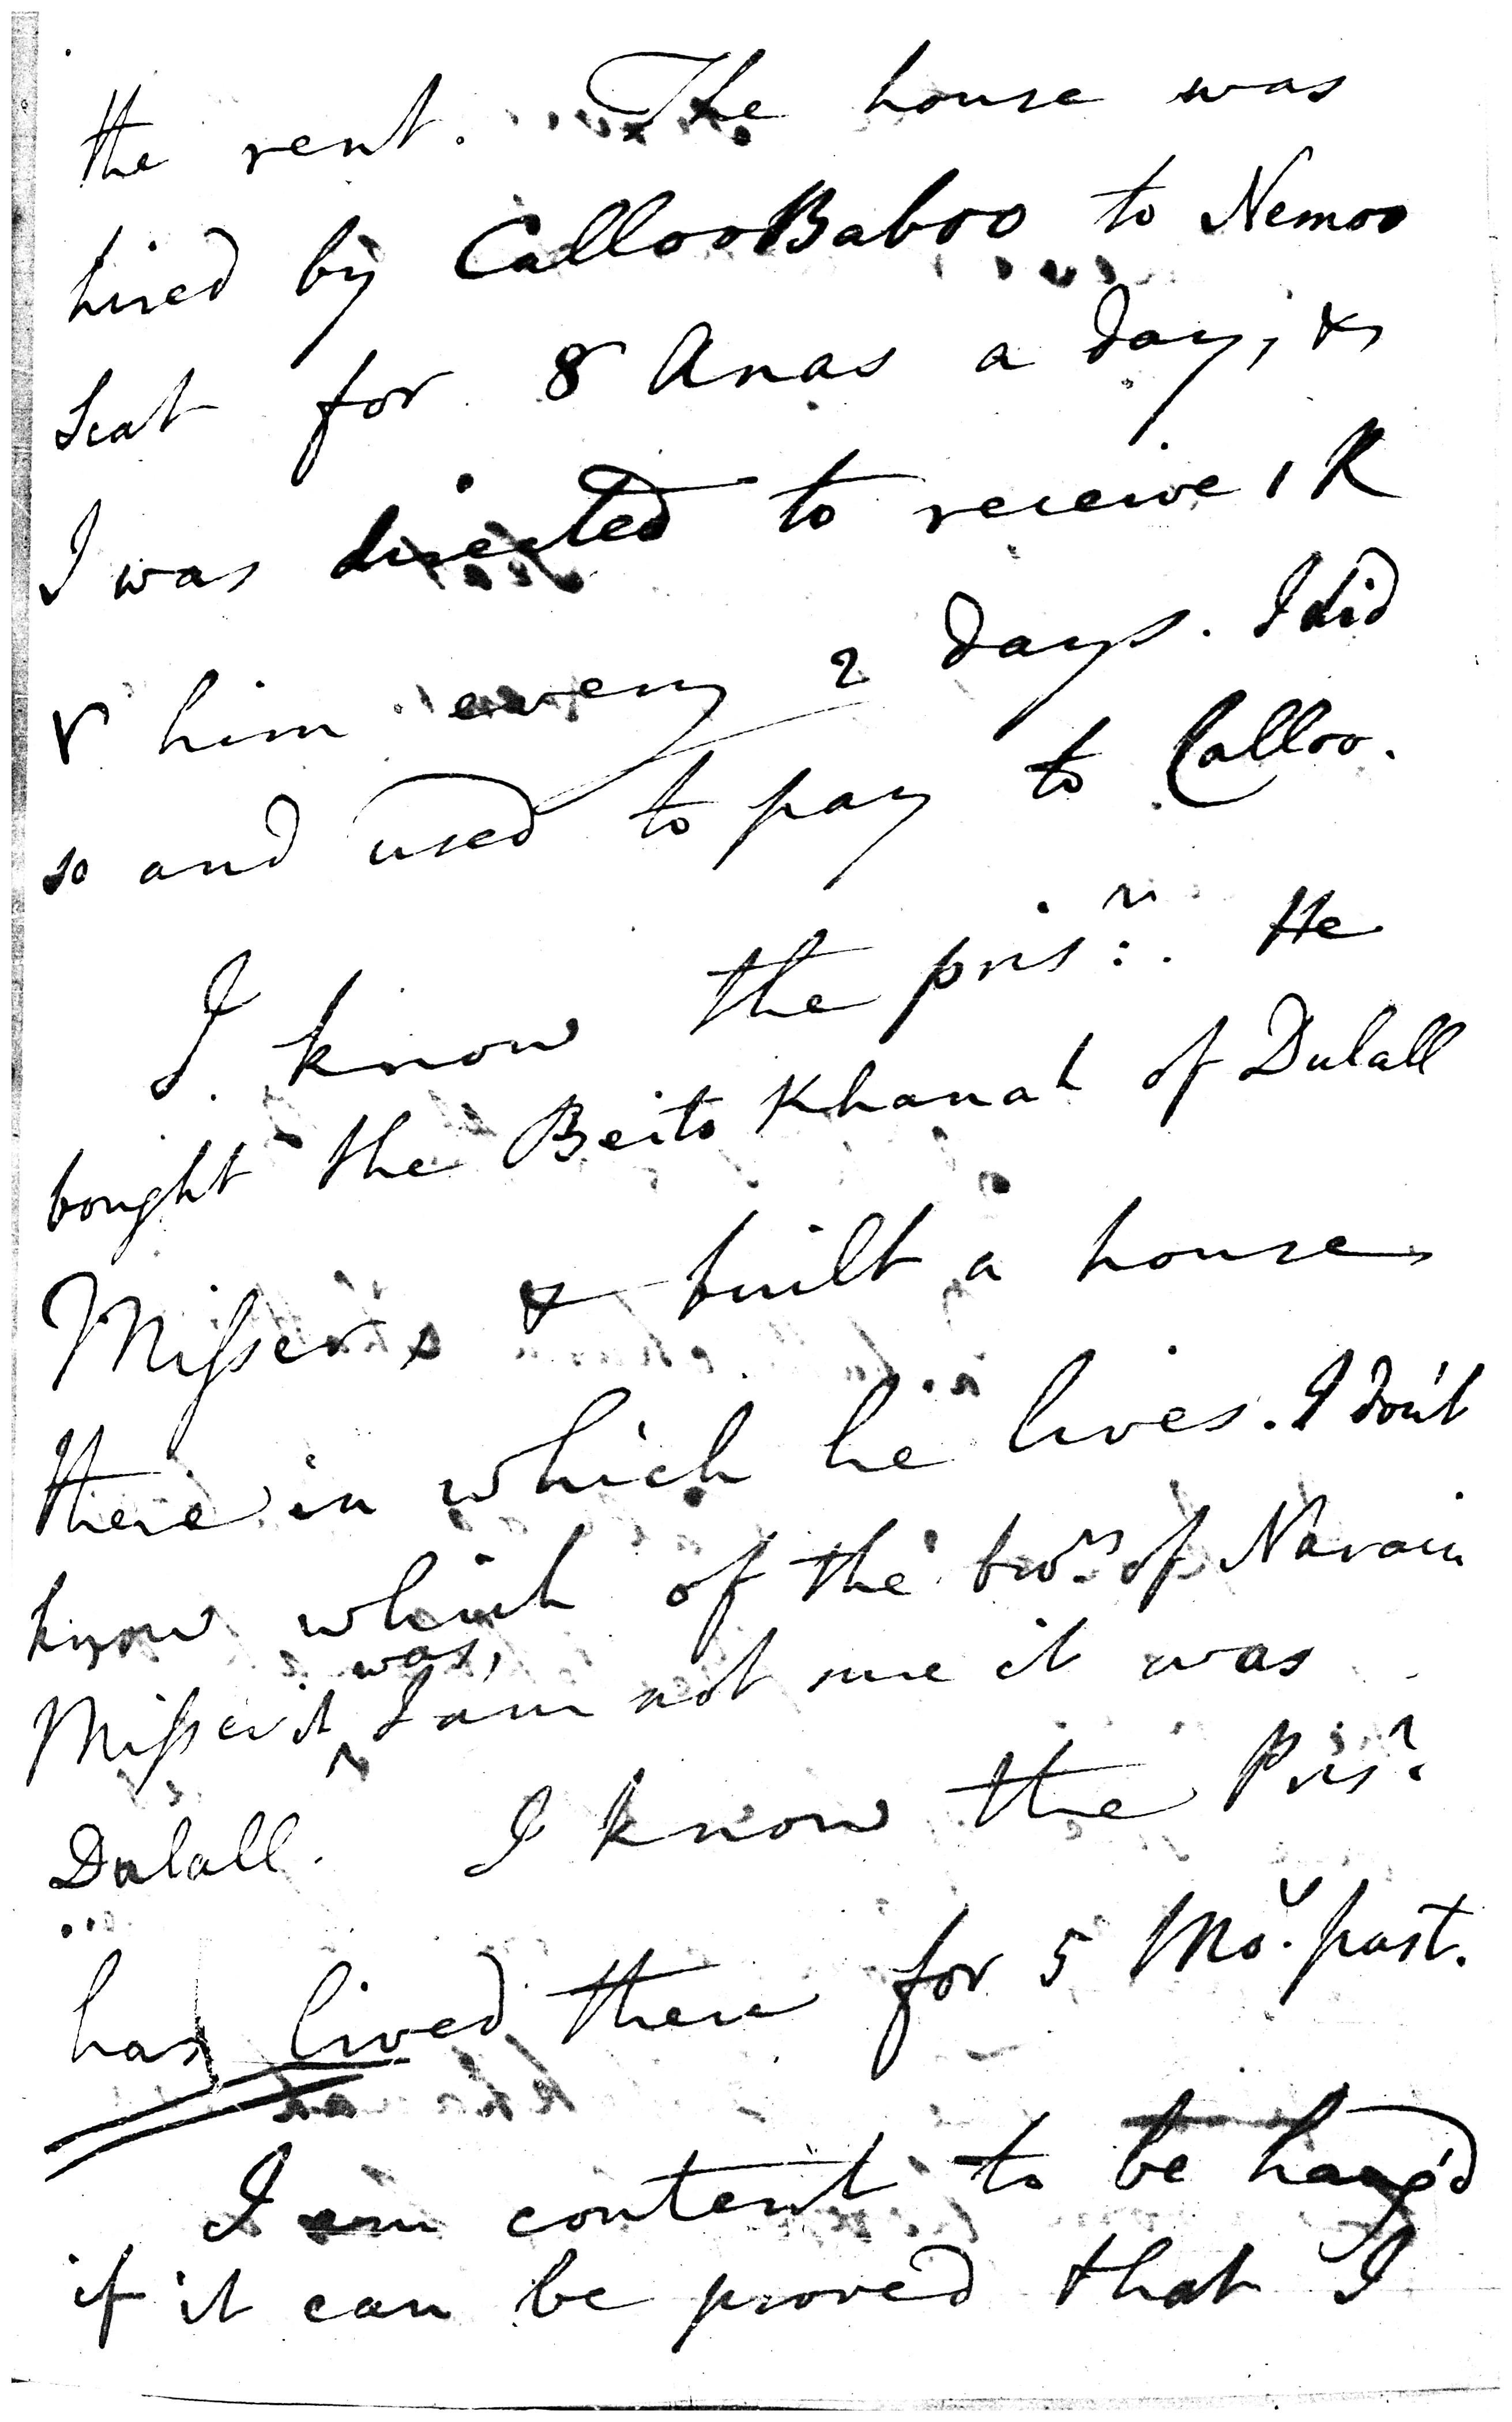 the rent. The house was
hired by Calloo Baboo to Nemoo
Seat for 8 Anas a day, &
I was directed to receive 1 R
him every 2 days. I did
so and used to pay to Calloo.
I know the prisr. He
bought the Beito Khanah of Dulall
Misser & built a house
there in which he lives. I don't
know which of the bros. of Narain
Misser it was, I am not sure it was
Dulall. I know the Prisr
has lived there for 5 Mo. past.
I am content to be hang'd
if it can be proved that I